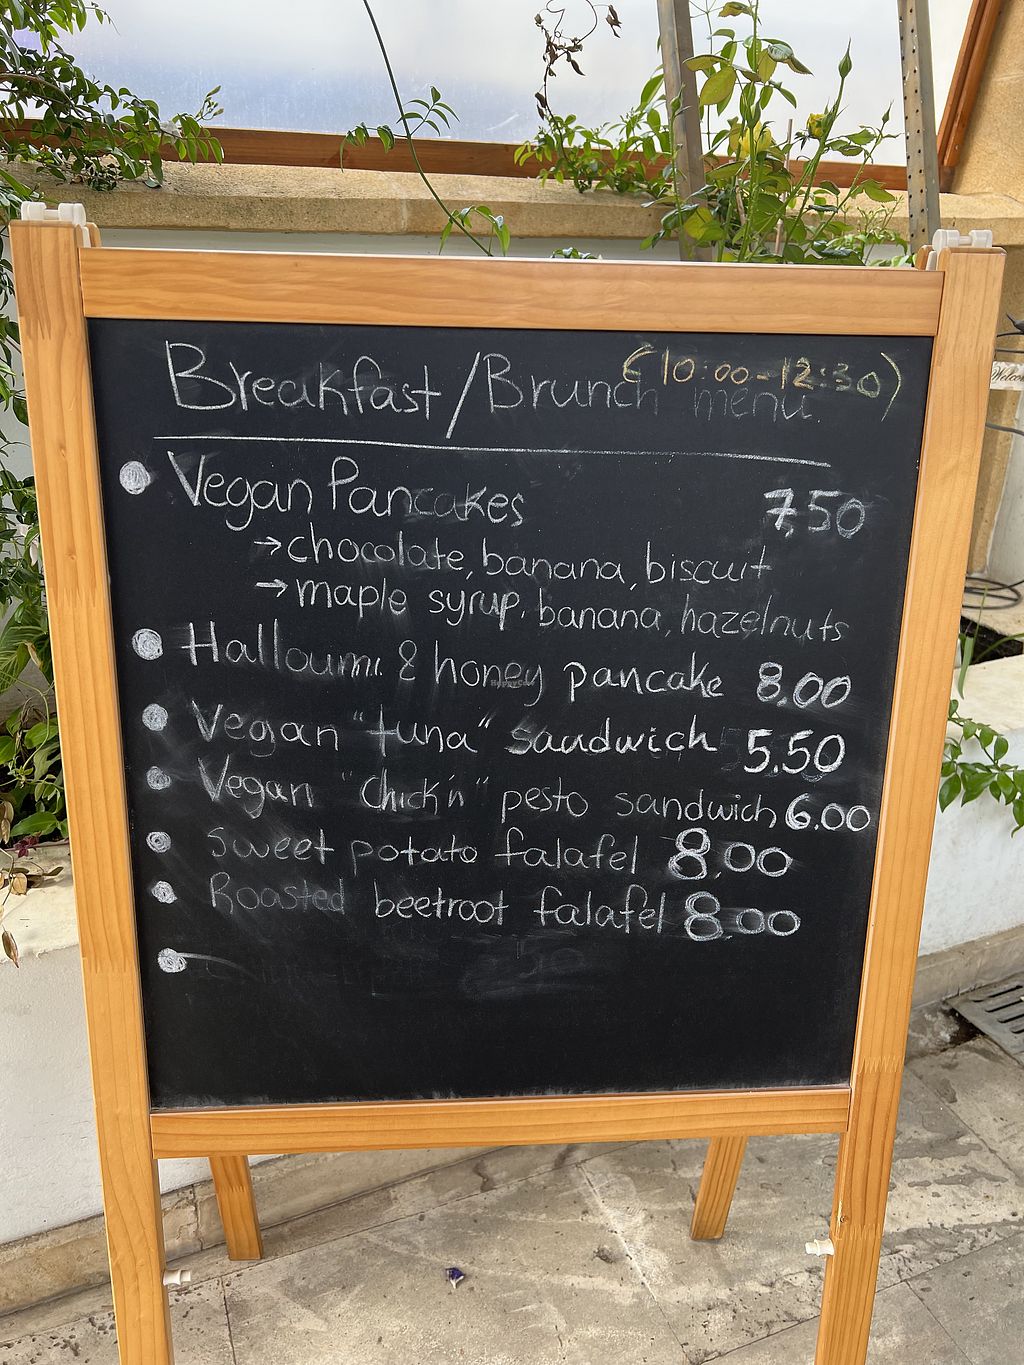 Breakfast/Brunch menu (10:00-12:30)
Vegan Pancakes 7,50
→chocolate, banana, biscuit
→maple syrup, banana, hazelnuts
Halloumi & honey pancake 8.00
Vegan "tuna" sandwich 5.50
Vegan "chick'n" pesto sandwich 6.00
Sweet potato falafel 8.00
Roasted beetroot falafel 8.00
Welcom
HappyCow